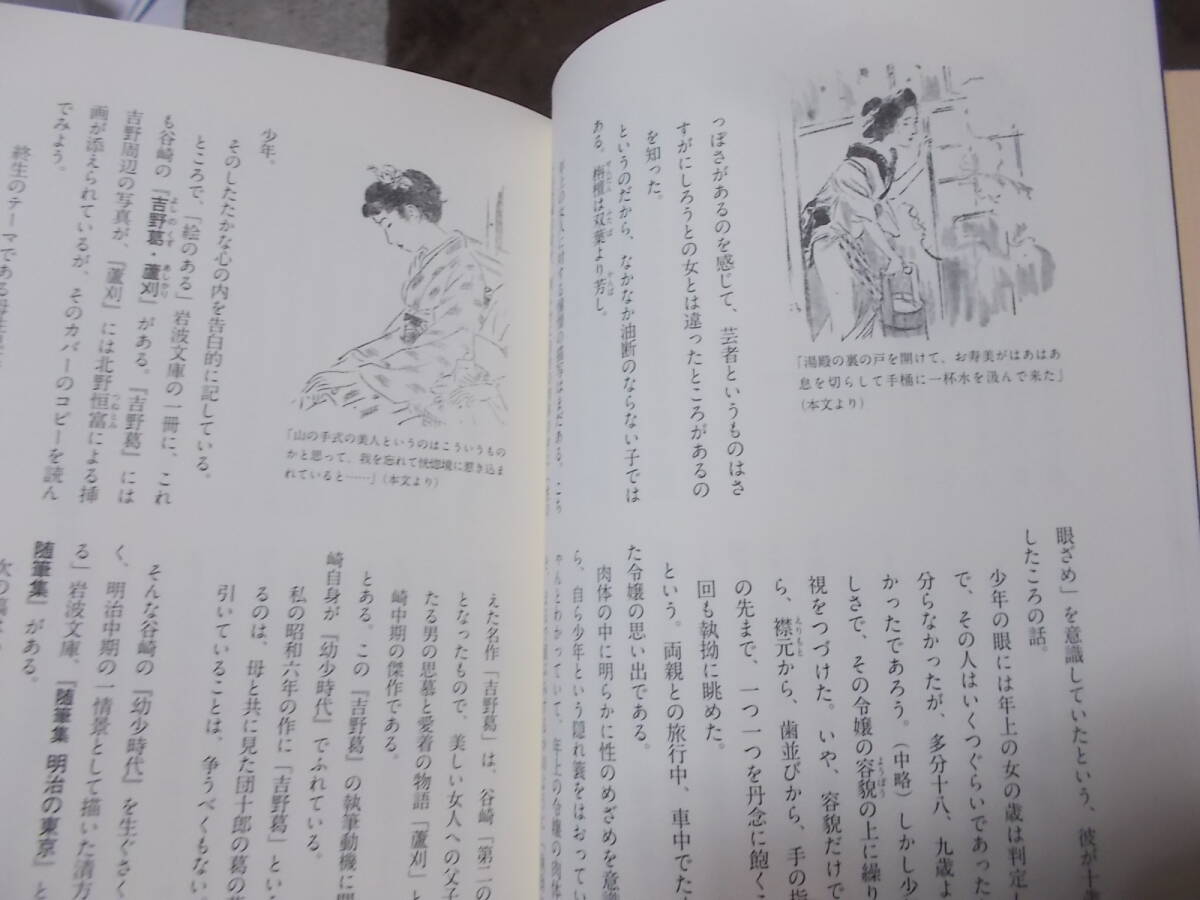 っぽさがあるのを感じて、芸者というものはさ
すがにしろうとの女とは違ったところがあるの
を知った。
というのだから、なかなか油断のならない子では
ある。栴檀は双葉より芳し。
「湯殿の裏の戸を開けて、お寿美がはあはあ
息を切らして手桶に一杯水を汲んで来た」
（本文より）
眼ざめ」を意識していたという、彼が十
したころの話。
少年の眼には年上の女の歳は判定し
で、その人はいくつぐらいであった
分らなかったが、多分十八、九歳よ
かったであろう。（中略）しかし少
しさで、その令嬢の容貌の上に繰り
視をつづけた。いや、容貌だけで
ら、襟元から、歯並びから、手の指
の先まで、一つ一つを丹念に飽くこ
回も執拗に眺めた。
という。両親との旅行中、車中でた
た令嬢の思い出である。
肉体の中に明らかに性のめざめを意識
ら、自ら少年という隠れ蓑をはおってい
少年。
そのしたたかな心の内を告白的に記している。
ところで、「絵のある」岩波文庫の一冊に、これ
も谷崎の『吉野葛・蘆刈』がある。『吉野葛』には
吉野周辺の写真が、『蘆刈』には北野恒富による挿
画が添えられているが、そのカバーのコピーを読ん
でみよう。
終生のテーマである
「山の手式の美人というのはこういうもの
かと思って、我を忘れて恍惚境に惹き込ま
れていると……」（本文より）
えた名作「吉野葛」は、谷崎「第二の
となったもので、美しい女人への父子
たる男の思慕と愛着の物語「蘆刈」と
崎中期の傑作である。
とある。この『吉野葛』の執筆動機に関
崎自身が『幼少時代』でふれている。
私の昭和六年の作に「吉野葛」とい
るのは、母と共に見た団十郎の葛の葉
引いていることは、争うべくもない
そんな谷崎の『幼少時代』を生ぐさく
く、明治中期の一情景として描いた清方
る」岩波文庫、『随筆集 明治の東京』と
随筆集』がある。